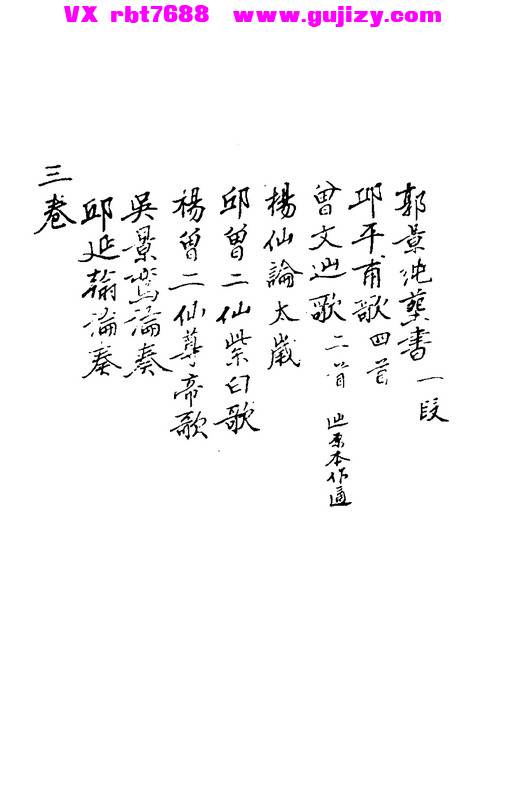 VX rbt7688 www.gujizy.com
郭景純葬書一段
邱平甫歌四首
曾文辿歌二首 辿原本作遄
楊仙論太歲
邱曾二仙紫白歌
楊曾二仙尊帝歌
吳景鸞論奏
邱延翰論奏
三卷